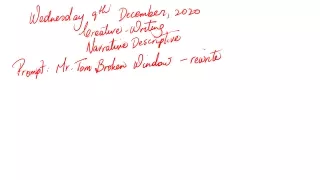 Wednesday 9th December, 2020
Creative Writing
Narrative Descriptive
Prompt: Mr. Tom Broken Window - rewrite